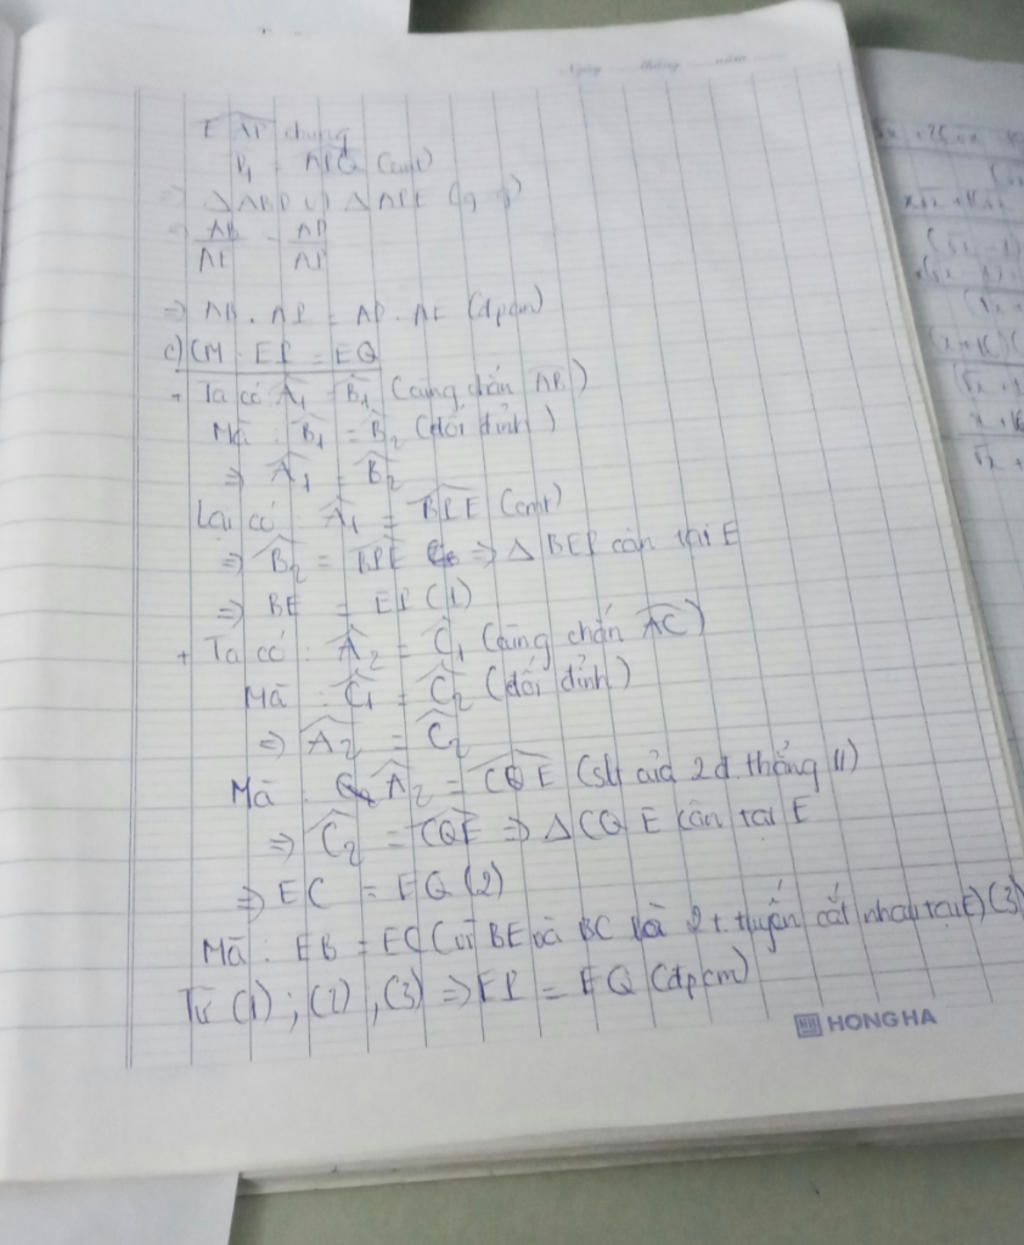 Ngày tháng năm
EAP chung
B₁ = (cmt)
⇒ Δ ABP ∽ Δ
⇒ AB/AE = AP/
⇒ AB . = AP . AE (đpcm)
c) CM : EP = EQ
+ Ta có: Â₁ = B̂₁ (cùng chắn AB)
Mà : B̂₁ = B̂₂ (đối đỉnh)
⇒ Â₁ = B̂₂
Lại có : Â₁ = BPE (cmt)
⇒ B̂₂ = BPE ⇒ Δ BEP cân tại E
⇒ BE = EP (1)
+ Ta có : Â₂ = Ĉ₁ (cùng chắn AC)
Mà : Ĉ₁ = Ĉ₂ (đối đỉnh)
⇒ Â₂ = Ĉ₂
Mà : Â₂ = CQE (slt của 2 đ. thẳng //)
⇒ Ĉ₂ = CQE ⇒ Δ CQE cân tại E
⇒ EC = EQ (2)
Mà : EB = EC (vì BE và BC là 2 t. tuyến cắt nhau tại E) (3)
Từ (1) ; (2) , (3) ⇒ EP = EQ (đpcm)
HONG HA